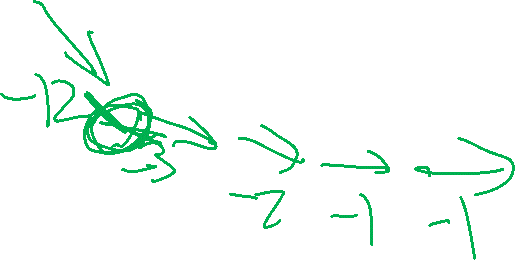 -12
-3
-2
-1
-1